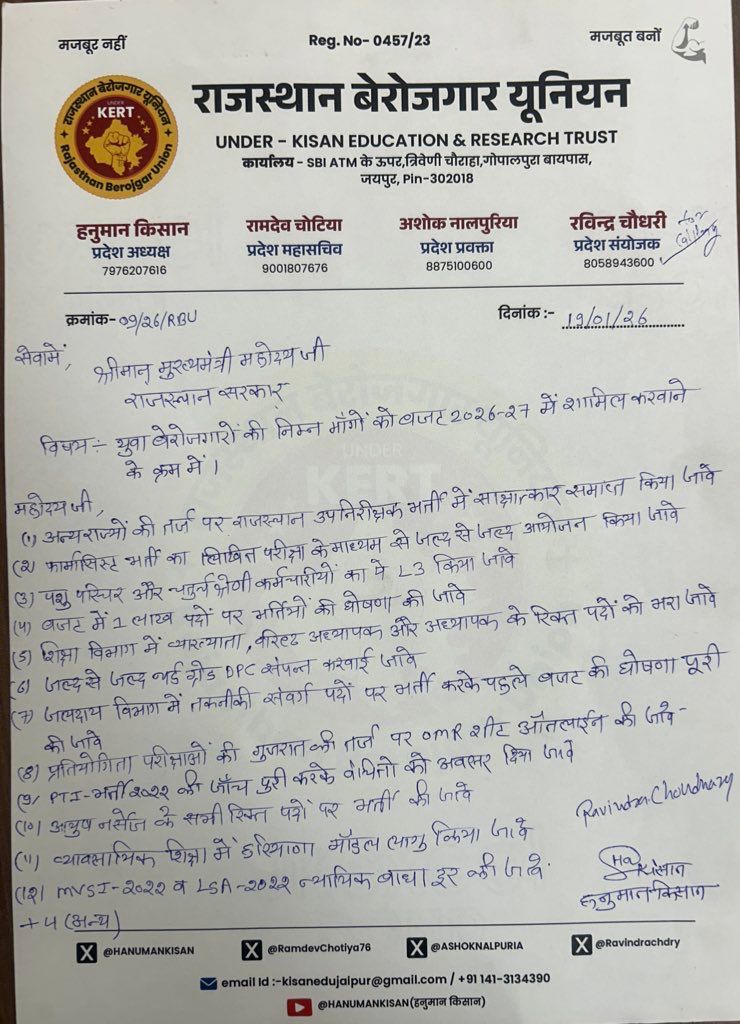 मजबूर नहीं
Reg. No- 0457/23
मजबूत बनों
राजस्थान बेरोजगार यूनियन
UNDER
KERT
Rajasthan Berojgar Union
राजस्थान बेरोजगार यूनियन
UNDER - KISAN EDUCATION & RESEARCH TRUST
कार्यालय - SBI ATM के ऊपर,त्रिवेणी चौराहा,गोपालपुरा बायपास,
जयपुर, Pin-302018
हनुमान किसान
प्रदेश अध्यक्ष
7976207616
रामदेव चोटिया
प्रदेश महासचिव
9001807676
अशोक नालपुरिया
प्रदेश प्रवक्ता
8875100600
रविन्द्र चौधरी
प्रदेश संयोजक
8058943600
for
calling
क्रमांक- 09/26/RBU
दिनांक :- 19/01/26
सेवामें,
श्रीमान् मुख्यमंत्री महोदय जी
राजस्थान सरकार
विषय :- युवा बेरोजगारों की निम्न माँगों को बजट 2026-27 में शामिल करवाने
के क्रम में ।
महोदय जी,
(1) अन्य राज्यों की तर्ज पर राजस्थान उपनिरीक्षक भर्ती में साक्षात्कार समाप्त किया जावे
(2) फार्मासिस्ट भर्ती का लिखित परीक्षा के माध्यम से जल्द से जल्द आयोजन किया जावे
(3) पशु परिचर और चतुर्थ श्रेणी कर्मचारीयों का पे L3 किया जावे
(4) बजट में 1 लाख पदों पर भर्तिओं की घोषणा की जावे
(5) शिक्षा विभाग में व्याख्याता, वरिष्ठ अध्यापक और अध्यापक के रिक्त पदों को भरा जावे
(6) जल्द से जल्द थर्ड ग्रेड DPC संपन्न करवाई जावे
(7) जलदाय विभाग में तकनीकी संवर्ग पदों पर भर्ती करके पहले बजट की घोषणा पूरी
की जावे
(8) प्रतियोगिता परीक्षाओं की गुजरात की तर्ज पर OMR शीट ऑनलाईन की जावे
(9) PTI-भर्ती 2022 की जाँच पुरी करके वंचितों को अवसर दिया जावे
(10) आयुष नर्सेज के सभी रिक्त पदों पर भर्ती की जावे
(11) व्यावसायिक शिक्षा में हरियाणा मॉडल लागु किया जावे
(12) MVSI-2022 व LSA-2022 न्यायिक बाधा दूर की जावे
+4 (अन्य)
Ravindra Choudhary
किसान
हनुमान किसान
@HANUMANKISAN
@RamdevChotiya76
@ASHOKNALPURIA
@Ravindrachdry
email Id :-kisanedujalpur@gmail.com / +91 141-3134390
@HANUMANKISAN (हनुमान किसान)